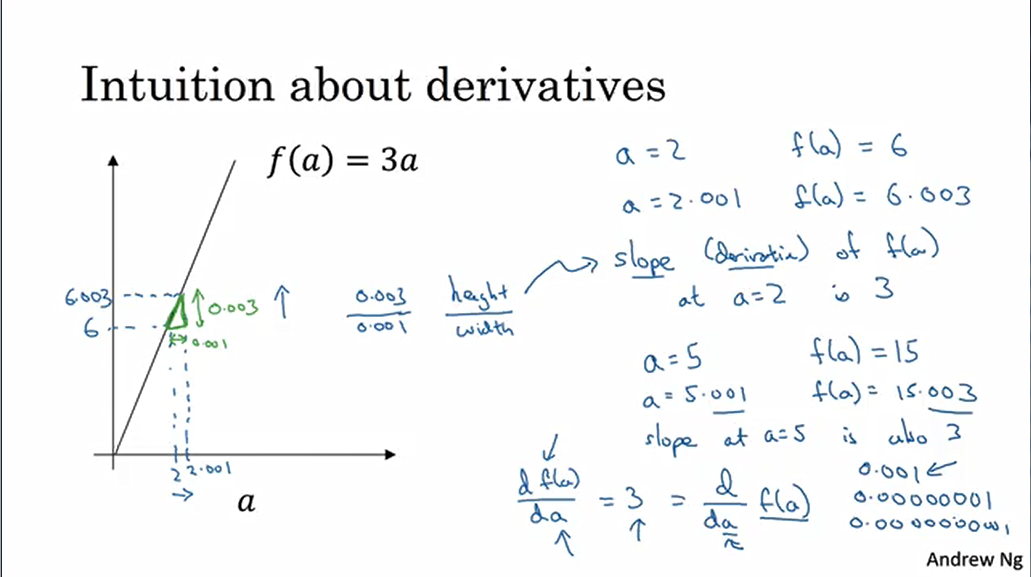 Intuition about derivatives
f(a) = 3a
6.003
6
0.003
0.001
2 2.001
a
0.003
0.001
height
width
a = 2 f(a) = 6
a = 2.001 f(a) = 6.003
slope (derivative) of f(a)
at a=2 is 3
a = 5 f(a) = 15
a = 5.001 f(a) = 15.003
slope at a=5 is also 3
d f(a)
da
= 3 =
d
da
f(a)
0.001
0.00000001
Andrew Ng